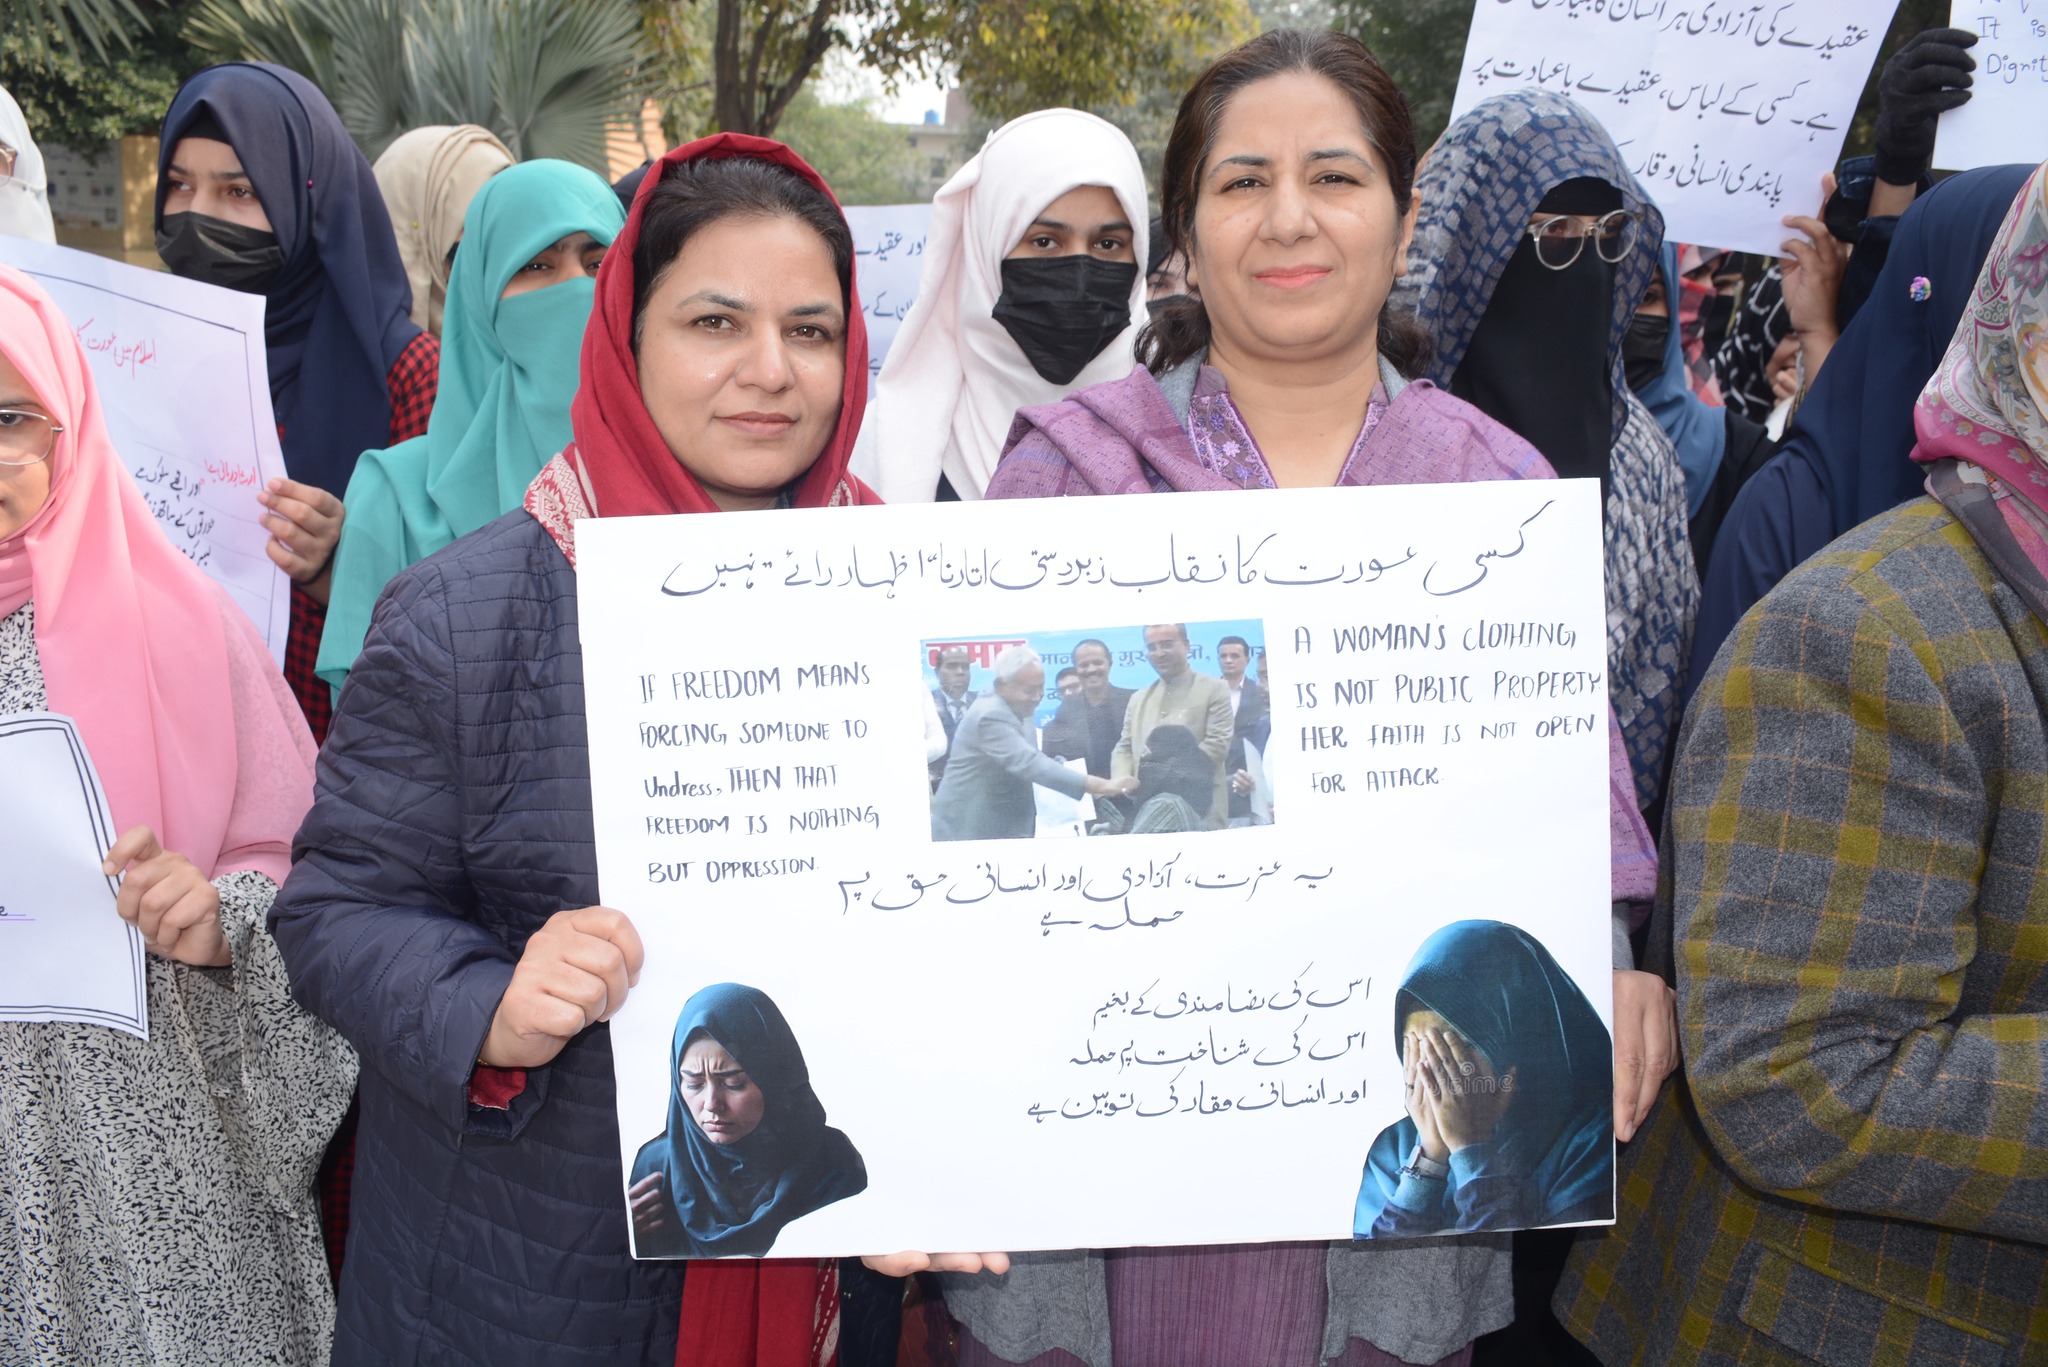 کسی عورت کا نقاب زبردستی اتارنا "اظہار رائے" نہیں
IF FREEDOM MEANS
FORCING SOMEONE TO
Undress, THEN THAT
FREEDOM IS NOTHING
BUT OPPRESSION.
मुख्य
A WOMAN'S CLOTHING,
IS NOT PUBLIC PROPERTY.
HER FAITH IS NOT OPEN
FOR ATTACK.
یہ عزت، آزادی اور انسانی حق پر
حملہ ہے
اس کی رضامندی کے بغیر
اس کی شناخت پر حملہ
اور انسانی وقار کی توہین ہے
عقیدے کی آزادی ہر انسان کا بنیادی
ہے۔ کسی کے لباس، عقیدے یا عبادت پر
پابندی انسانی وقار
It is
Dignity
اور عقیدے
اسلام میں عورت
اور اچھے سلوک سے
عورتوں کے ساتھ